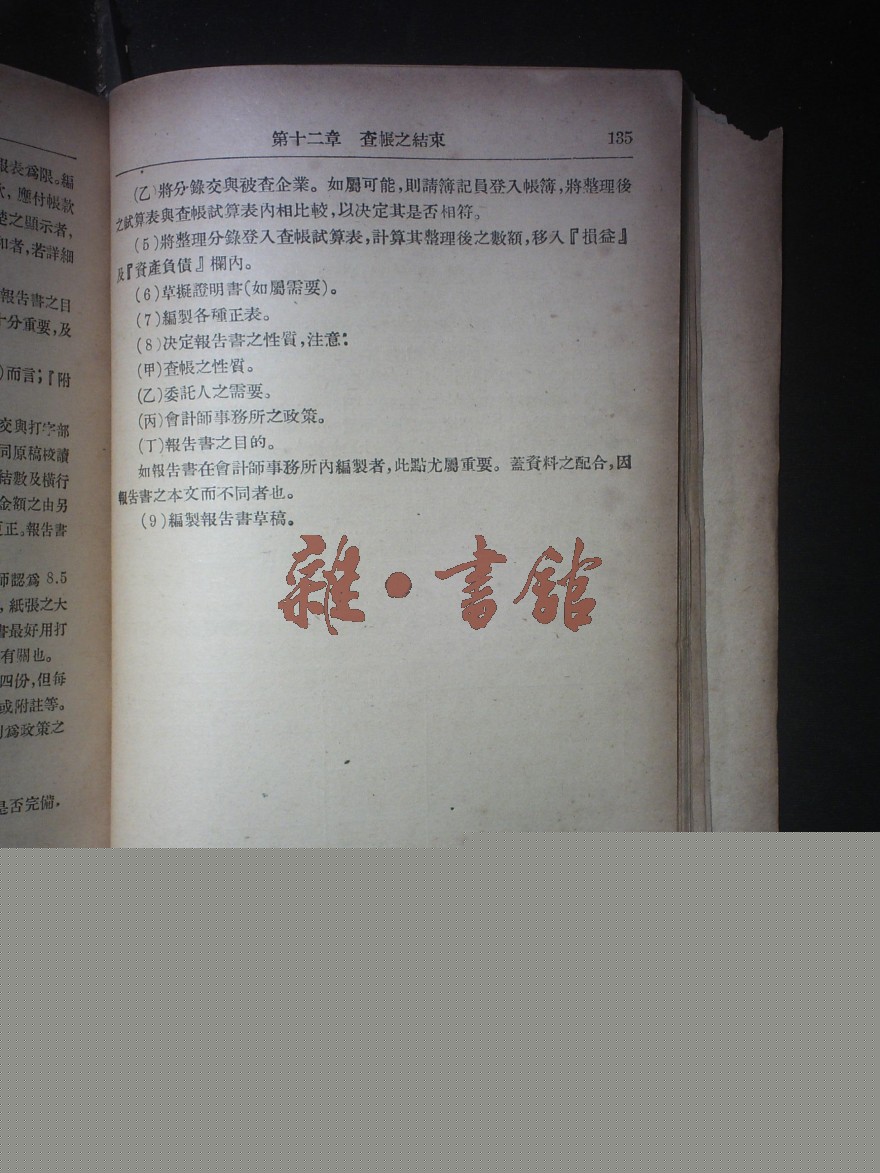 第十二章　查帳之結束　135
(乙)將分錄交與被查企業。如屬可能,則請簿記員登入帳簿,將整理後
之試算表與查帳試算表內相比較,以決定其是否相符。
(5)將整理分錄登入查帳試算表,計算其整理後之數額,移入『損益』
及『資產負債』欄內。
(6)草擬證明書(如屬需要)。
(7)編製各種正表。
(8)決定報告書之性質,注意:
(甲)查帳之性質。
(乙)委託人之需要。
(丙)會計師事務所之政策。
(丁)報告書之目的。
如報告書在會計師事務所內編製者,此點尤屬重要。蓋資料之配合,因
報告書之本文而不同者也。
(9)編製報告書草稿。
雜·書館
報表爲限。編
應付帳款
楚之顯示者,
和者,若詳細
報告書之目
十分重要,及
)而言;『附
交與打字部
同原稿校讀
結數及橫行
金額之由另
正。報告書
師認爲 8.5
,紙張之大
書最好用打
有關也。
四份,但每
或附註等。
爲政策之
是否完備,